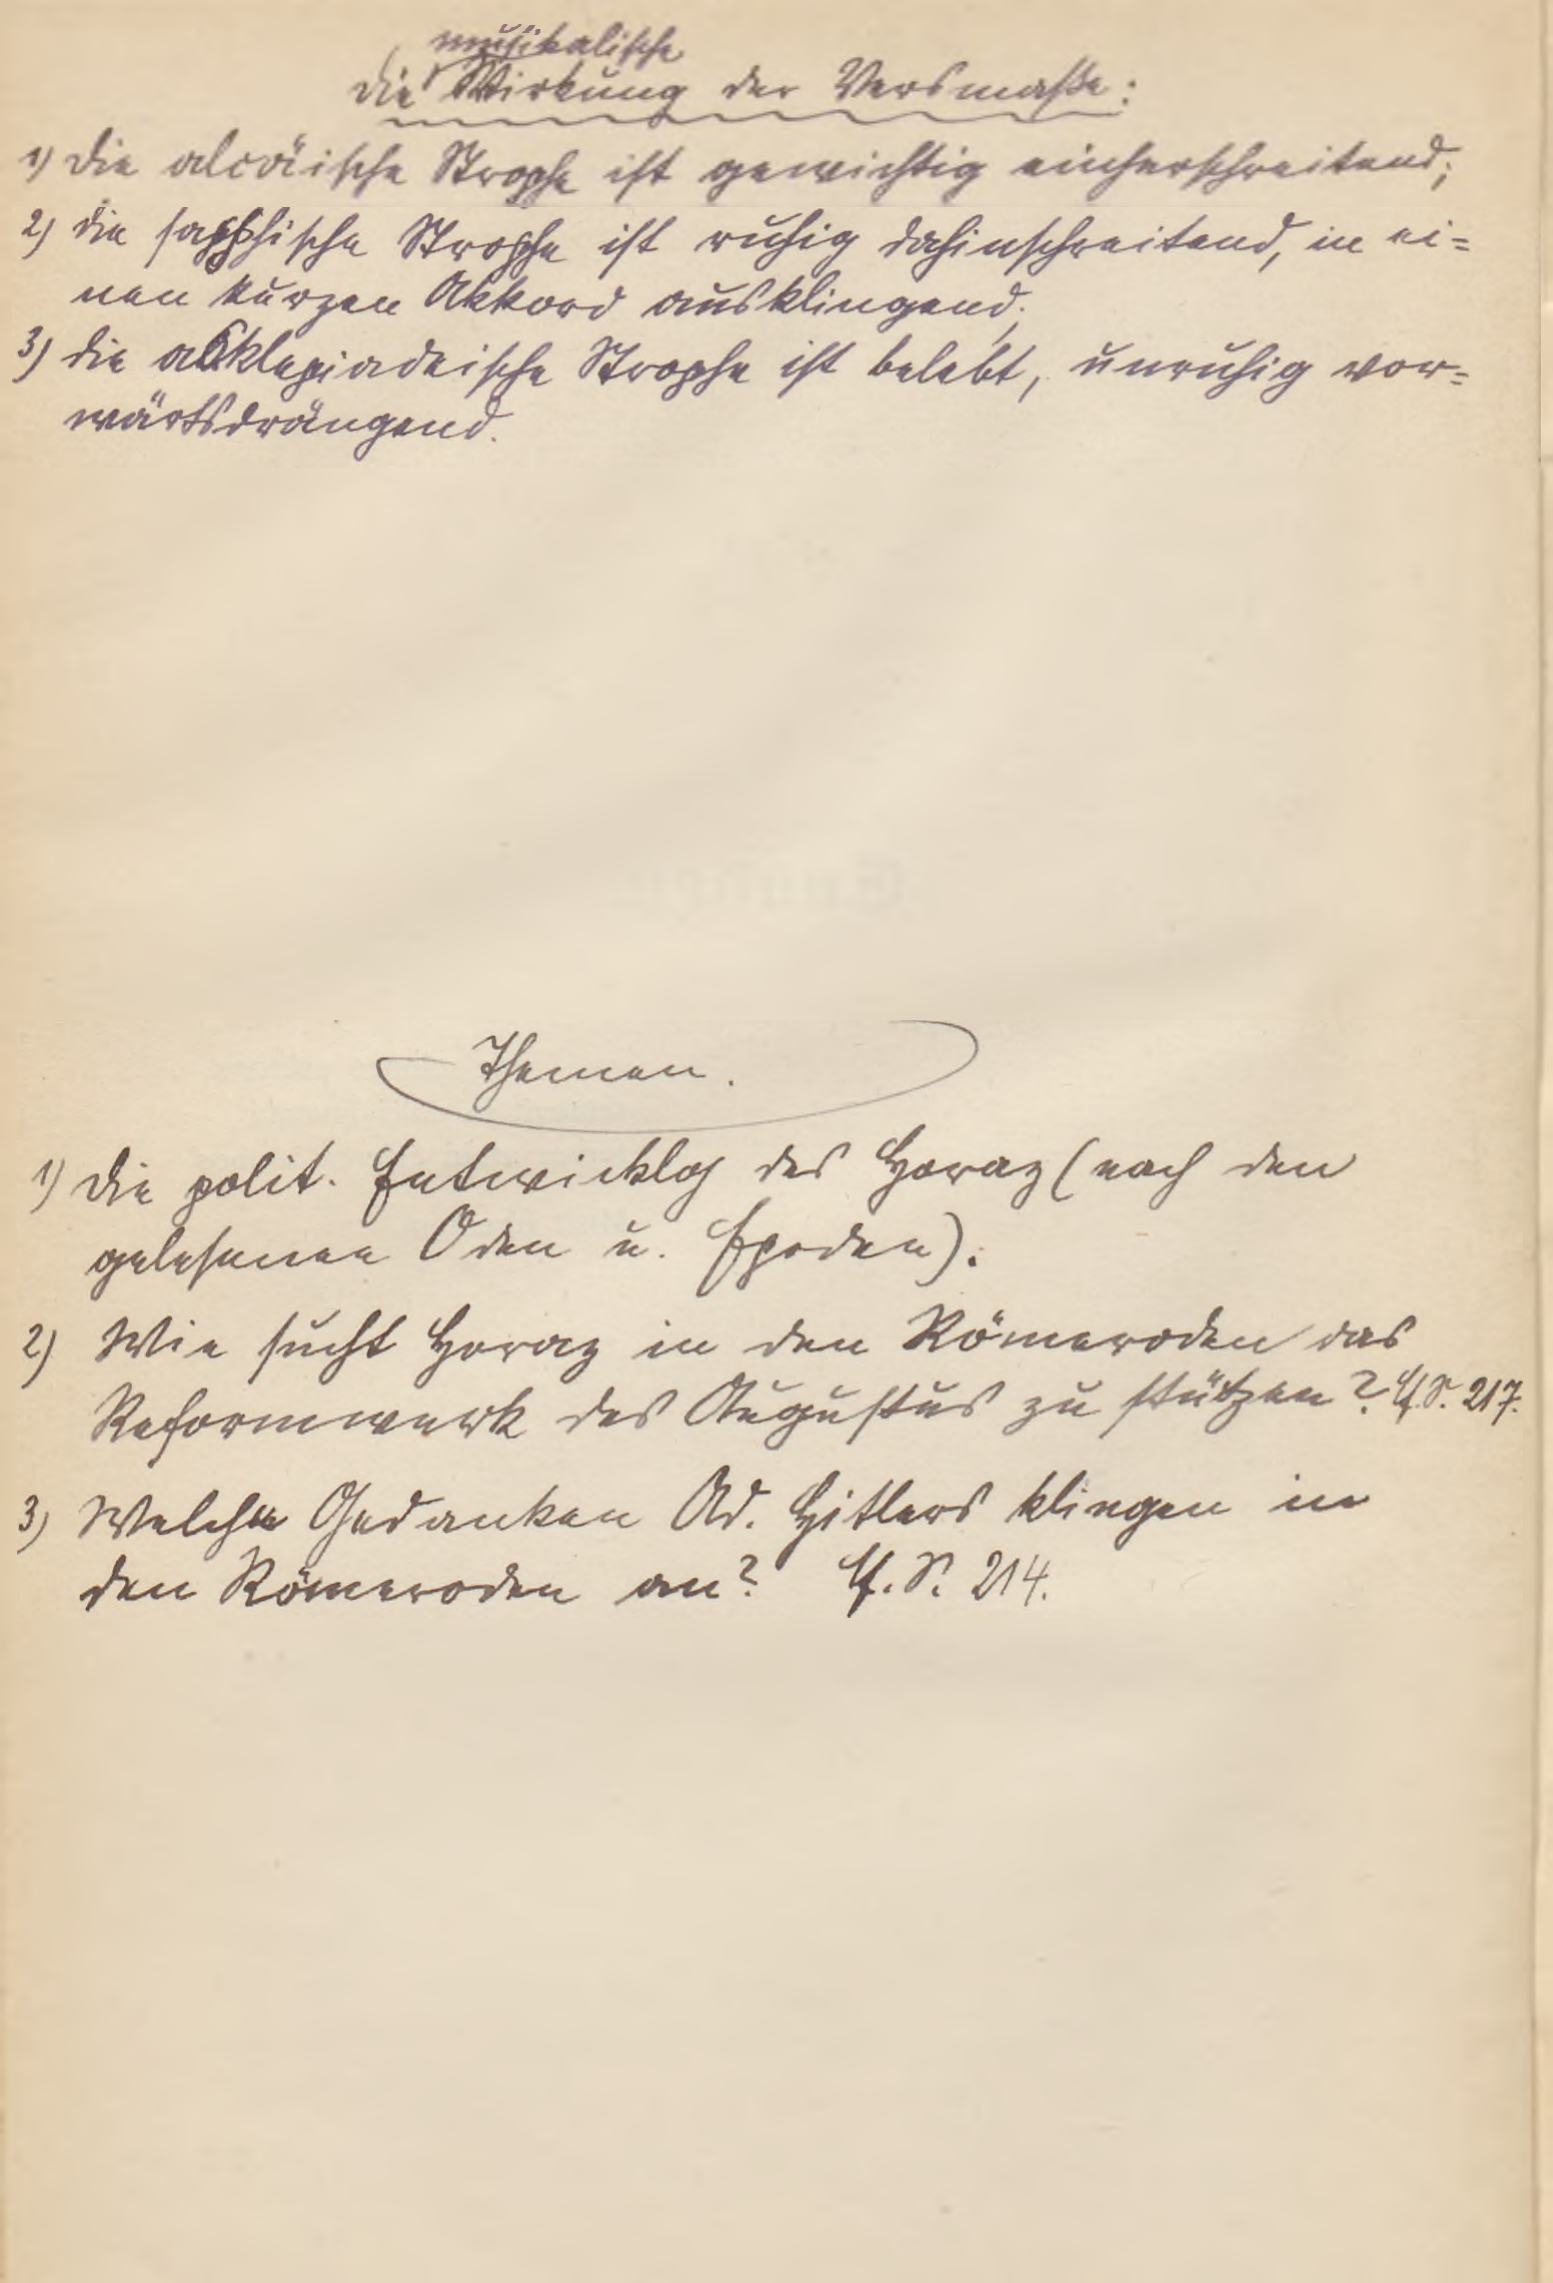 musikalische
Die Wirkung der Versmaße:
1) die alcäische Strophe ist gewichtig einherschreitend;
2) die sapphische Strophe ist ruhig dahinschreitend, in ei=
nen kurzen Akkord ausklingend;
3) die asklepiadeische Strophe ist belebt, unruhig vor=
wärtsdrängend.
Themen.
1) Die polit. Entwicklg des Horaz (nach den
gelesenen Oden u. Epoden).
2) Wie sucht Horaz in den Römeroden das
Reformwerk des Augustus zu stützen? Cf. S. 217.
3) Welche Gedanken Ad. Hitlers klingen in
den Römeroden an? Cf. S. 214.